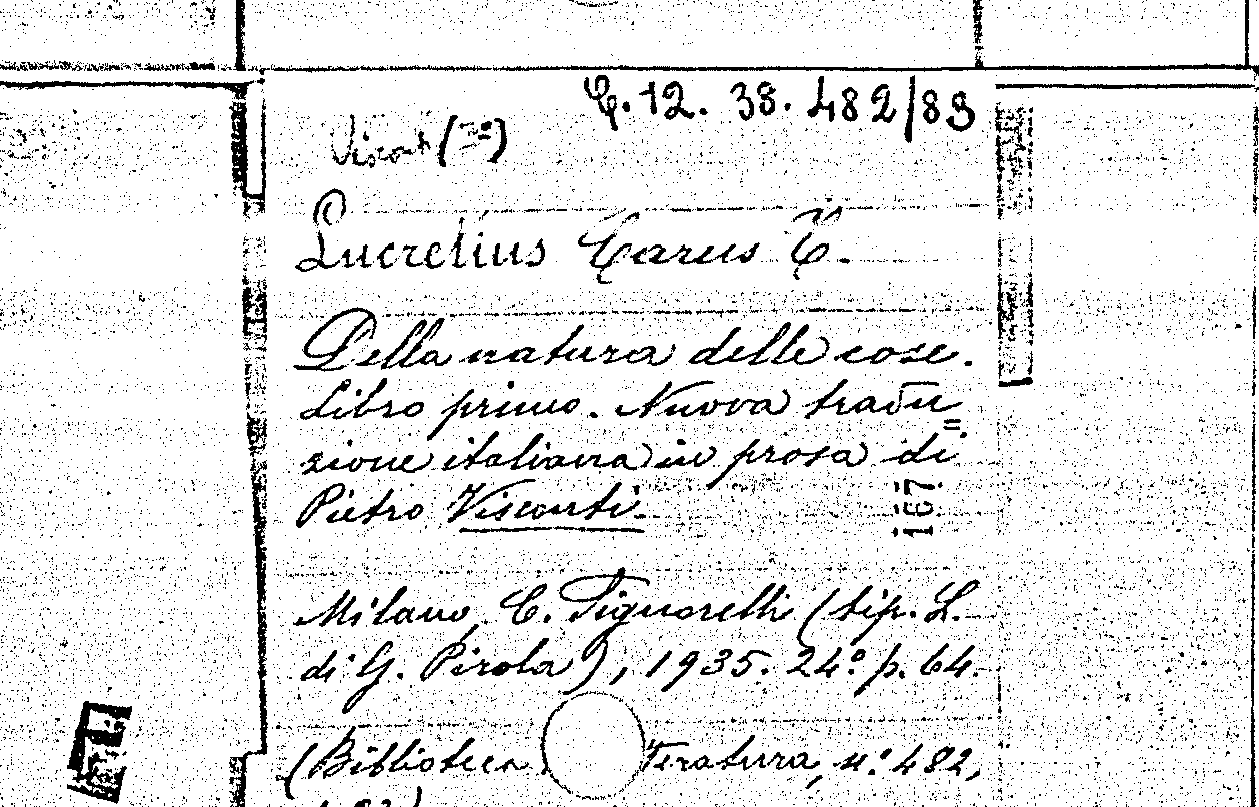 C. 12. 38. 482/83
Visconti (Pº)
Lucretius Carus T.
Della natura delle cose.
Libro primo. Nuova tradu=
zione italiana in prosa di
Pietro Visconti.
167
Milano, C. Signorelli (tip. L.
di G. Pirola), 1935. 24º p. 64.
(Biblioteca teratura, nº 482,